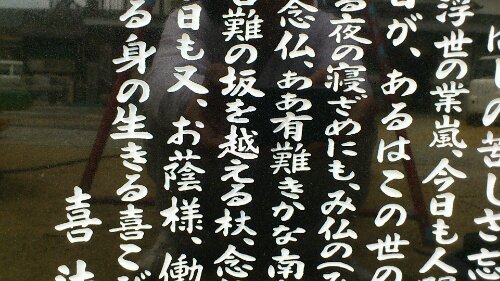 の苦しさ忘
浮世の業嵐、今日も人間
が、あるはこの世の
る夜の寝ざめにも、み仏の一
念仏、ああ有難きかな南
難の坂を越える杖、念
日も又、お蔭様、働
る身の生きる喜こび
喜